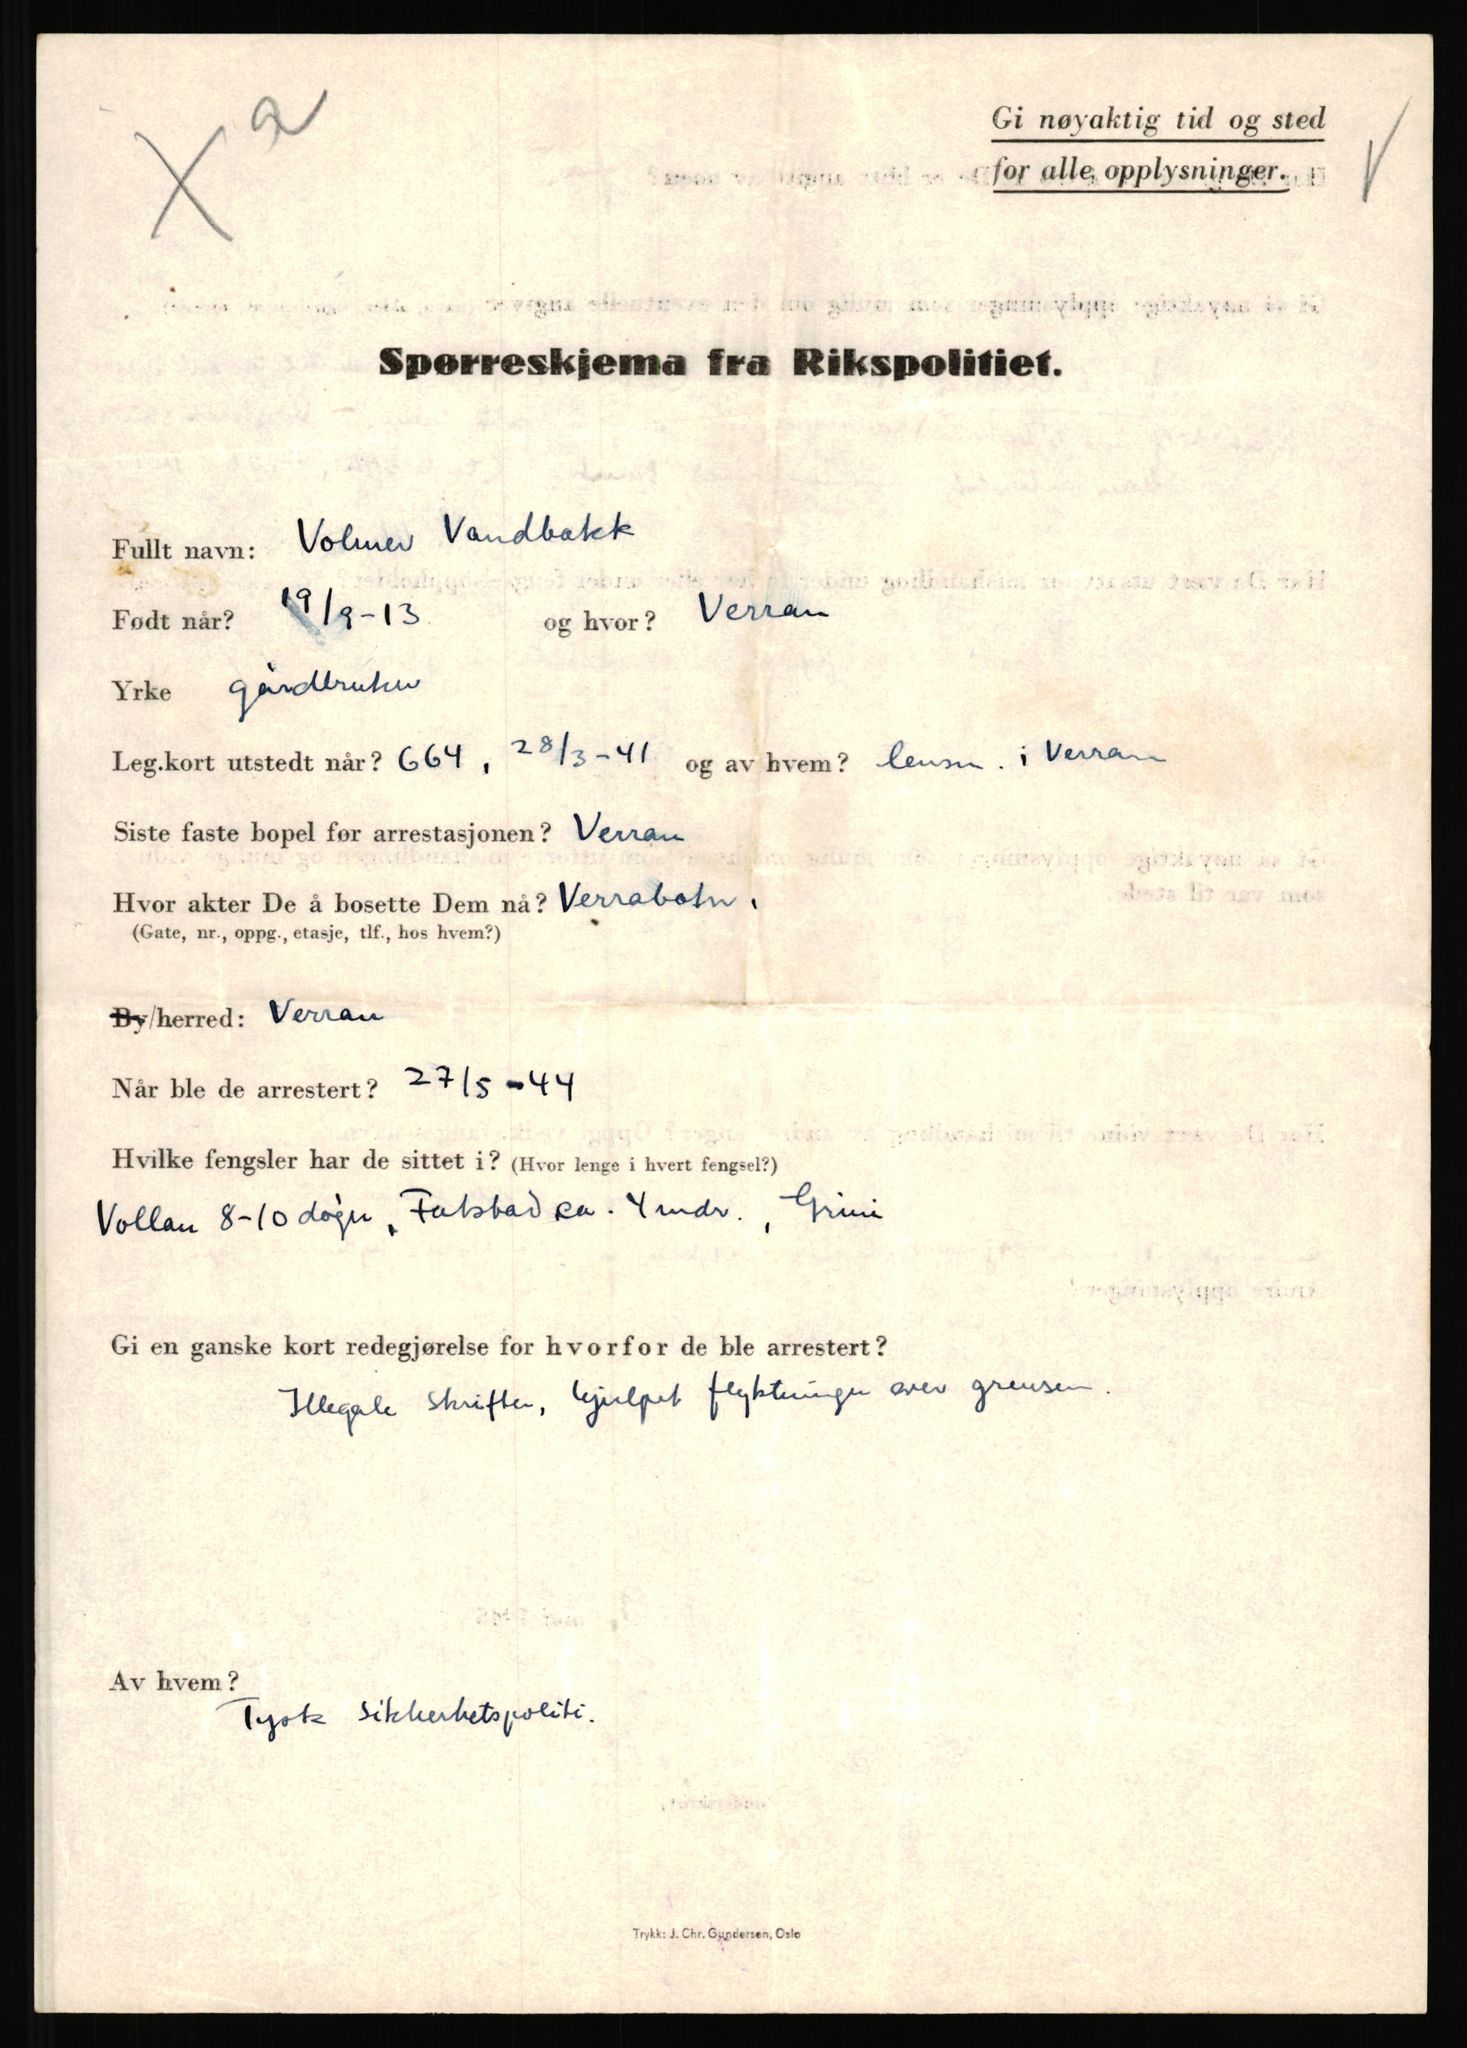 X a
Gi nøyaktig tid og sted
for alle opplysninger.
Spørreskjema fra Rikspolitiet.
Fullt navn: Volmer Vandbakk
Født når? 19/9-13 og hvor? Verran
Yrke gårdbruker
Leg.kort utstedt når? 664, 28/3-41 og av hvem? lensm. i Verran
Siste faste bopel før arrestasjonen? Verran
Hvor akter De å bosette Dem nå? Verrabotn.
(Gate, nr., oppg., etasje, tlf., hos hvem?)
By/herred: Verran
Når ble de arrestert? 27/5-44
Hvilke fengsler har de sittet i? (Hvor lenge i hvert fengsel?)
Vollan 8-10 døgn, Falstad ca. 4 mdr., Grini
Gi en ganske kort redegjørelse for hvorfor de ble arrestert?
Illegale skrifter, hjulpet flyktninger over grensen.
Av hvem?
Tysk sikkerhetspoliti.
Trykk: J. Chr. Gundersen, Oslo